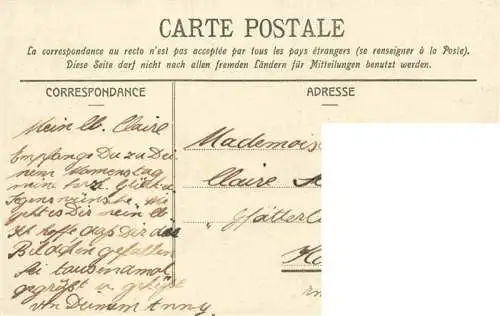 CARTE POSTALE
La correspondance au recto n'est pas acceptée par tous les pays étrangers (se renseigner à la Poste).
Diese Seite darf nicht nach allen fremden Ländern für Mitteilungen benutzt werden.
CORRESPONDANCE
ADRESSE
Mein lb. Claire
Empfange Du zu Dei
nem Namenstag
mine herzl. Glück u.
Segenswünsche. Wie
geht es Dir mein lb
Ich hoffe daß Dir das
Bildchen gefallen
Sei tausendmal
gegrüßt u. geküßt
von Deinem Anny.
Mademois
Claire